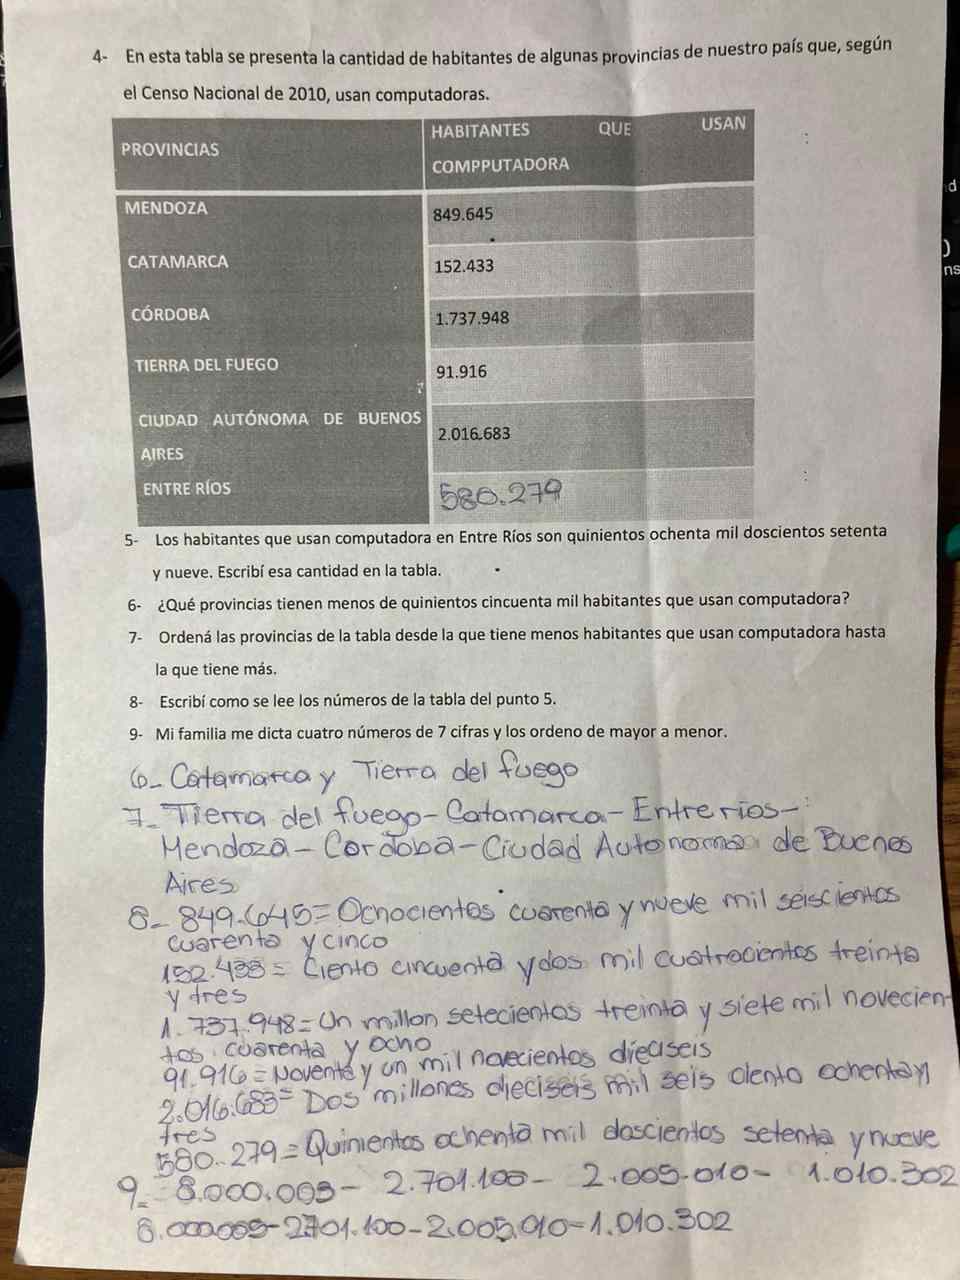 4- En esta tabla se presenta la cantidad de habitantes de algunas provincias de nuestro país que, según
el Censo Nacional de 2010, usan computadoras.
PROVINCIAS HABITANTES QUE USAN
COMPPUTADORA
MENDOZA 849.645
CATAMARCA 152.433
CÓRDOBA 1.737.948
TIERRA DEL FUEGO 91.916
CIUDAD AUTÓNOMA DE BUENOS
AIRES 2.016.683
ENTRE RÍOS 580.279
5- Los habitantes que usan computadora en Entre Ríos son quinientos ochenta mil doscientos setenta
y nueve. Escribí esa cantidad en la tabla.
6- ¿Qué provincias tienen menos de quinientos cincuenta mil habitantes que usan computadora?
7- Ordená las provincias de la tabla desde la que tiene menos habitantes que usan computadora hasta
la que tiene más.
8- Escribí como se lee los números de la tabla del punto 5.
9- Mi familia me dicta cuatro números de 7 cifras y los ordeno de mayor a menor.
6- Catamarca y Tierra del fuego
7- Tierra del fuego - Catamarca - Entre rios -
Mendoza - Cordoba - Ciudad Autonoma de Buenos
Aires
8- 849.645 = Ochocientos cuarenta y nueve mil seiscientos
cuarenta y cinco
152.433 = Ciento cincuenta y dos mil cuatrocientos treinta
y tres
1.737.948 = Un millon setecientos treinta y siete mil novecien-
tos cuarenta y ocho
91.916 = Noventa y un mil novecientos dieciseis
2.016.683 = Dos millones dieciseis mil seis ciento ochenta y
tres
580.279 = Quinientos ochenta mil doscientos setenta y nueve
9- 8.000.003 - 2.701.100 - 2.005.010 - 1.010.302
8.000.003 - 2.701.100 - 2.005.010 - 1.010.302